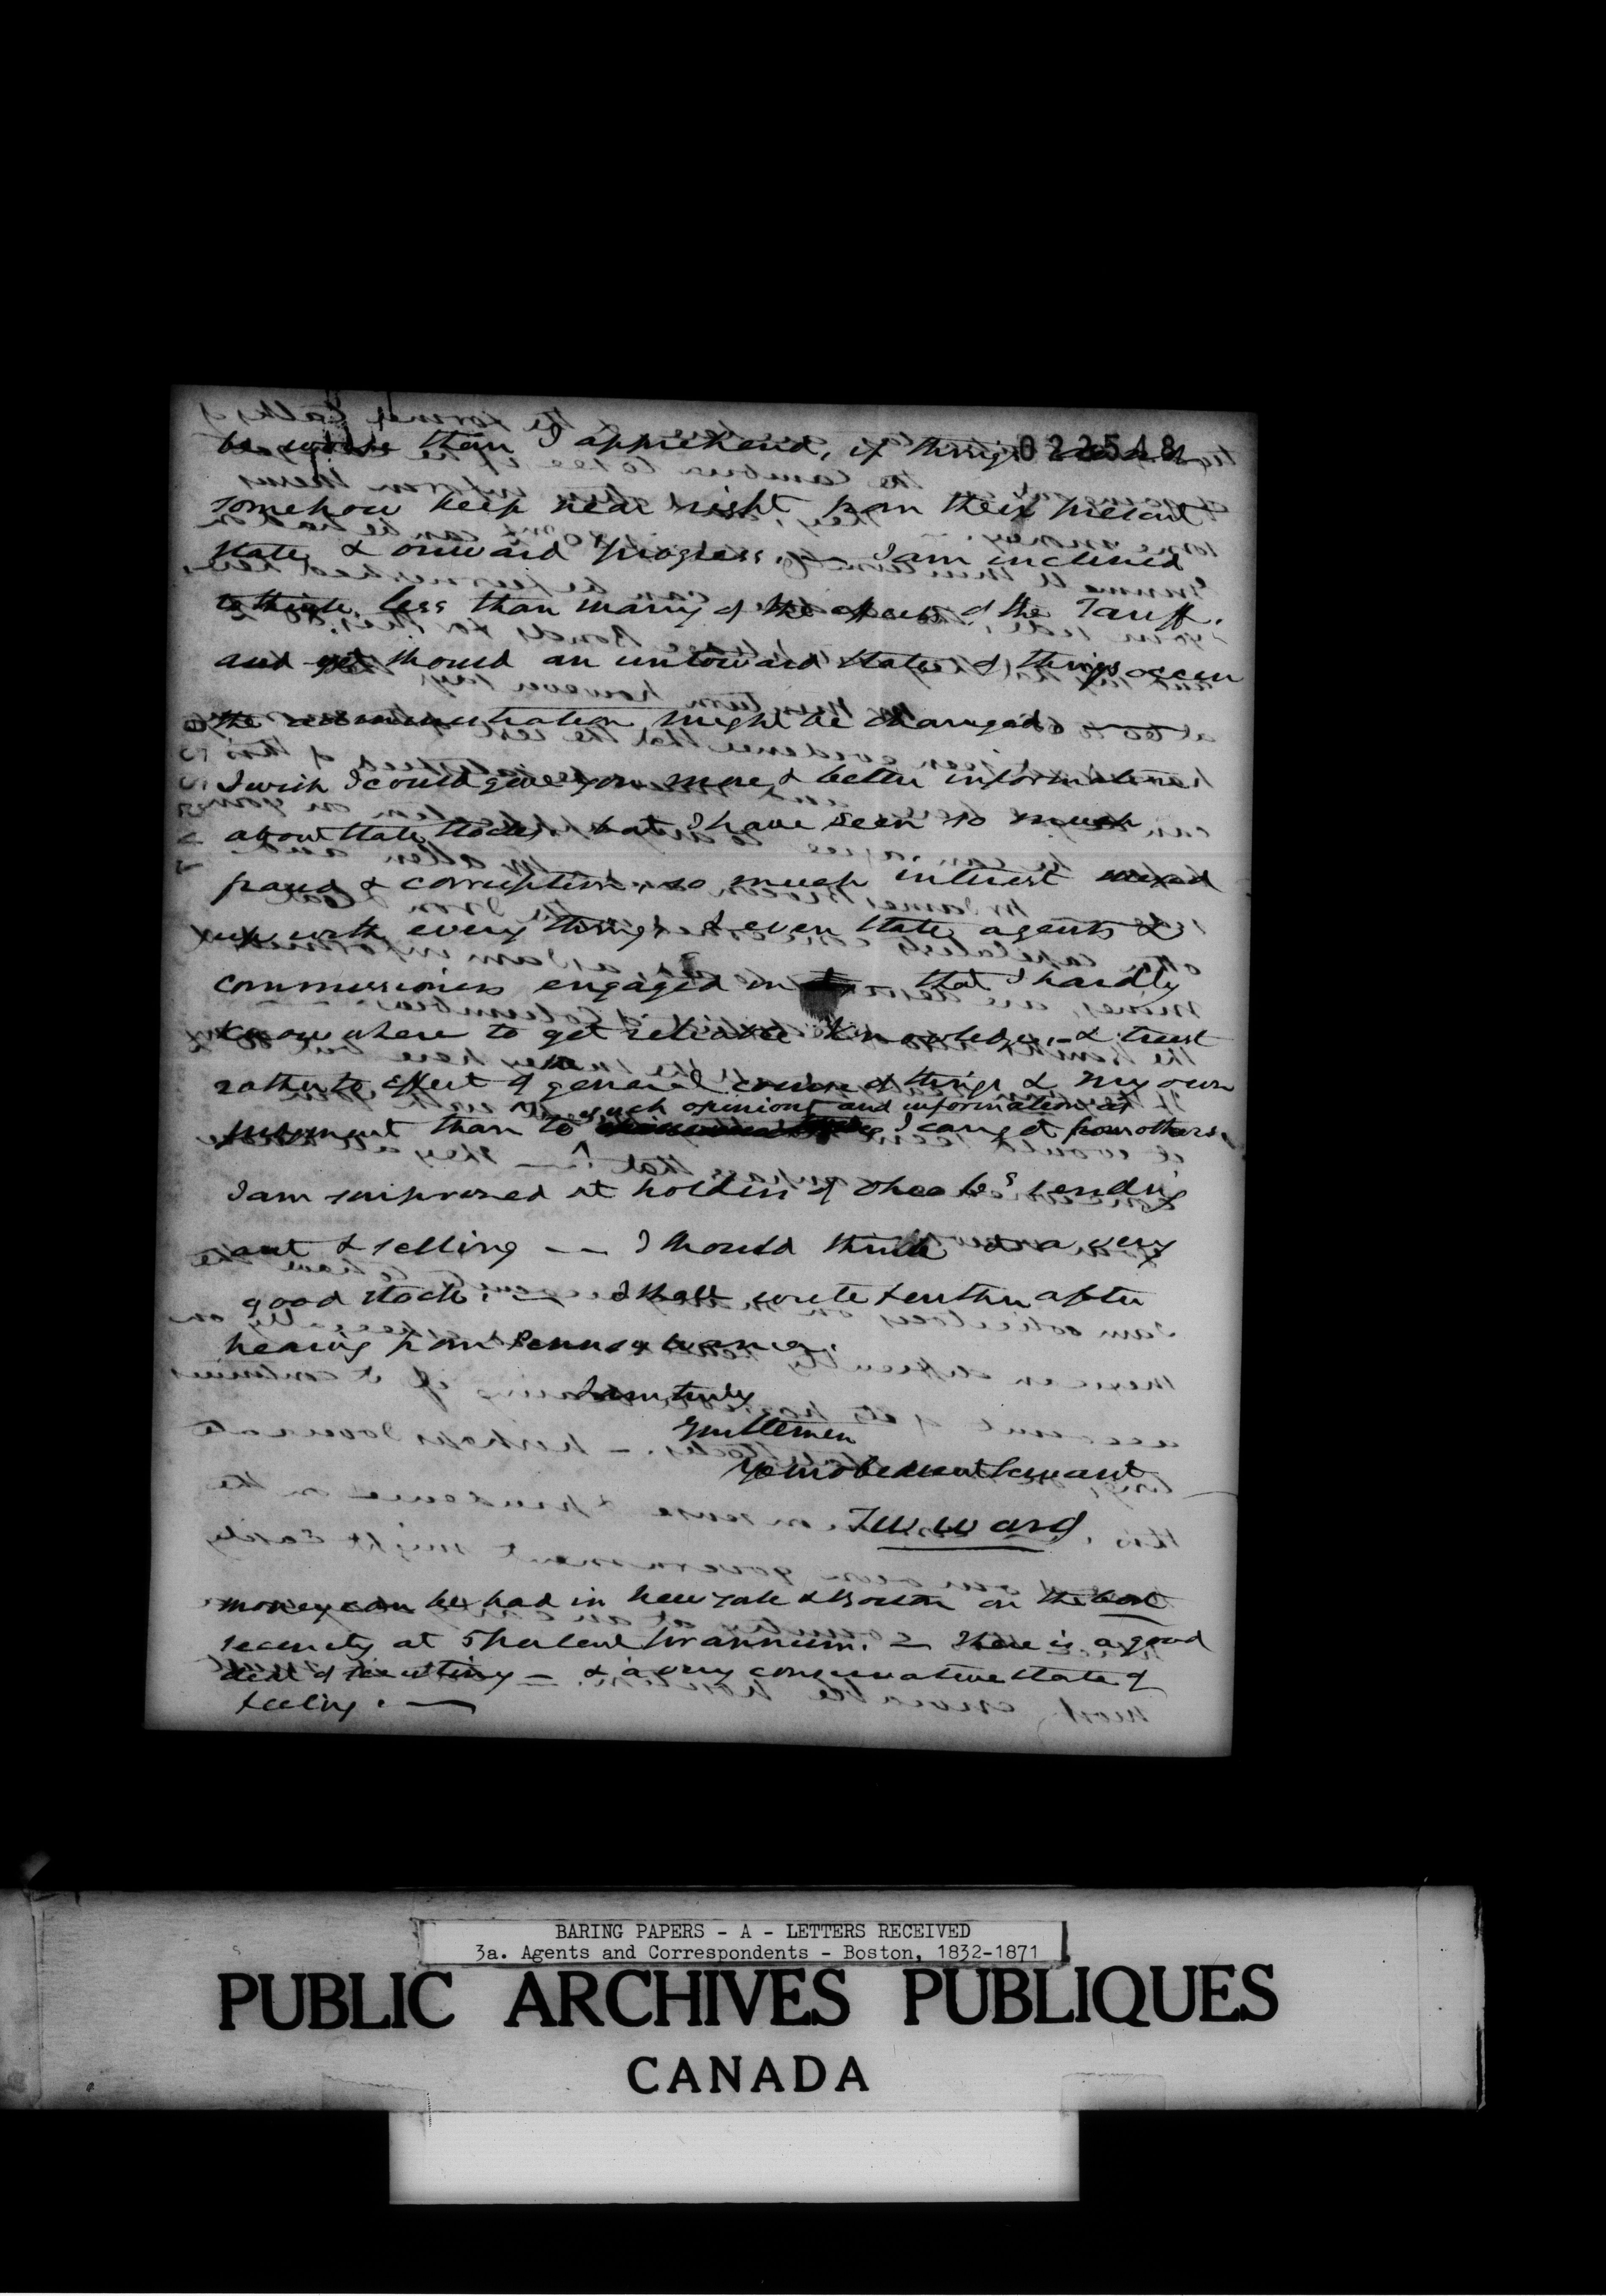 022548
be worse than I apprehend, if things
somehow keep near right from their present
state & onward progress. — I am inclined
to think less than many of the effects of the Tariff.
and yet should an untoward state of things occur
the administration might be changed.
I wish I could give you more & better information
about State Stocks, but I have seen so much
fraud & corruption, so much interest mixed
up with every thing, & even State agents &
commissioners engaged in that I hardly
know where to get reliable knowledge, — & trust
rather to effect of the general course of things & my own
judgment than to such opinions and information as I can get from others.
I am surprised at holders of Ohio 6s sending
out & selling — — I should think it a very
good stock. — I shall write further after
hearing from Pennsylvania.
I am truly
Gentlemen
Your obedient Servant
T W Ward
money can be had in New York & Boston on the best
security at 5 per cent per annum. — There is a good
deal of — & a very conservative state of
feeling. —
BARING PAPERS - A - LETTERS RECEIVED
3a. Agents and Correspondents - Boston, 1832-1871
PUBLIC ARCHIVES PUBLIQUES
CANADA